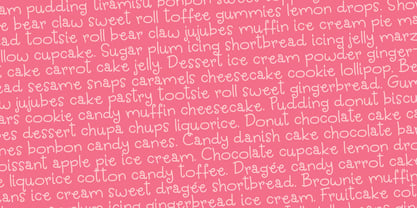 am pudding tiramisu bonbon sweet
bear claw sweet roll toffee gummies lemon drops. Sho
ad tootsie roll bear claw jujubes muffin ice cream pie m
llow cupcake. Sugar plum icing shortbread icing jelly marz
cake carrot cake jelly. Dessert ice cream powder ginger
ead sesame snaps caramels cheesecake cookie lollipop. Be
w jujubes cake pastry tootsie roll sweet gingerbread. Gum
ars cookie candy muffin cheesecake. Pudding donut biscu
es dessert chupa chups liquorice. Donut chocolate cake ca
nes bonbon candy canes. Candy danish cake chocolate ba
oissant apple pie ice cream. Chocolate cupcake lemon dro
liquorice cotton candy toffee. Dragée candy carrot cak
ans ice cream sweet dragée shortbread. Brownie muffin
icing gingerbread ice cream. Fruitcake co